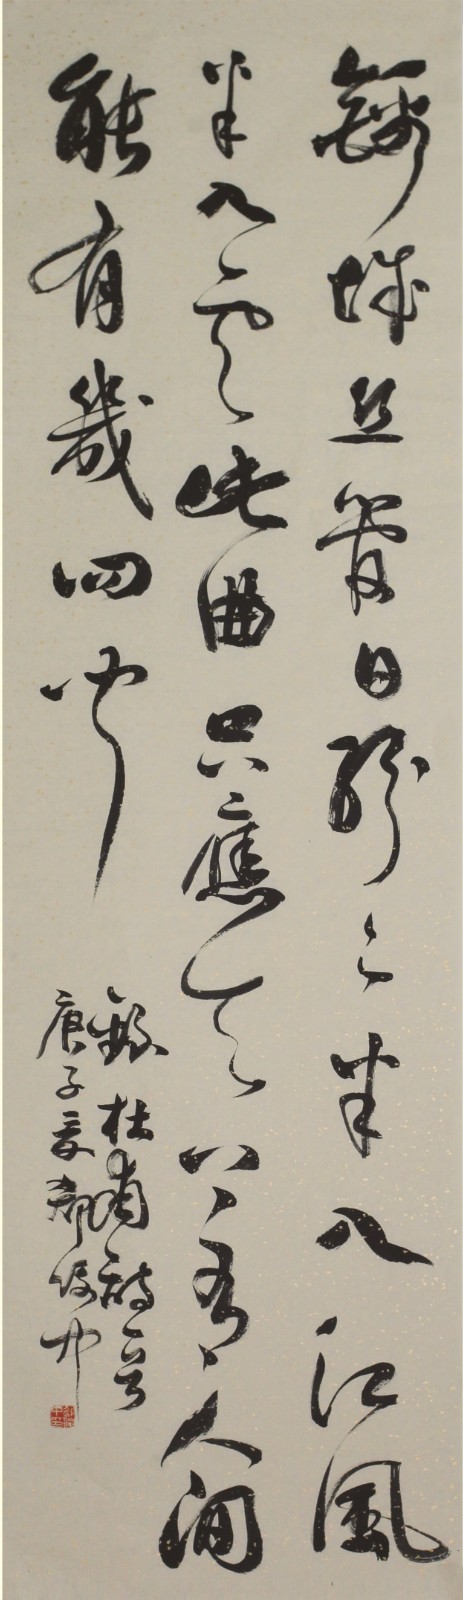 錦城丝管日紛々半入江風
半入雲此曲只應天上有人間
能有幾回聞
錄杜甫詩一首
庚子夏